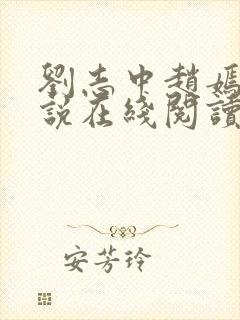 劉志中趙媽
說在綫閱讀
安芳玲